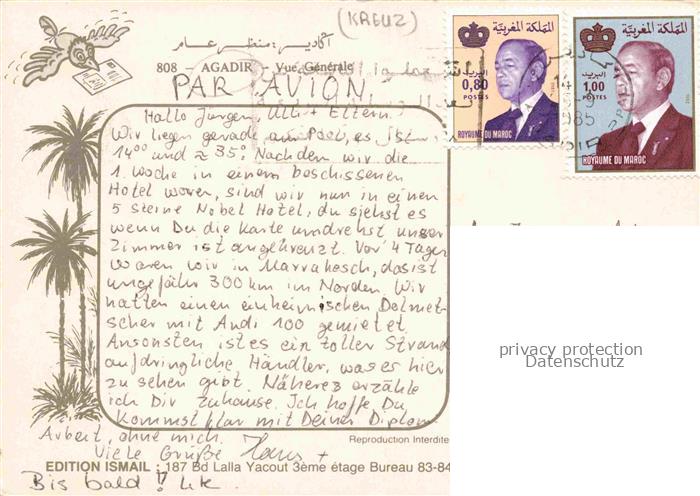 (KREUZ)
أكادير: منظر عام
808 – AGADIR – Vue Générale
PAR AVION
المملكة المغربية
البريد
0,80
POSTES
ROYAUME DU MAROC
المملكة المغربية
البريد
1,00
POSTES
ROYAUME DU MAROC
1985
Hallo Jürgen, Ulli + Eltern.
Wir liegen gerade am Pool, es ist
14⁰⁰ und ≈ 35°. Nachdem wir die
1 Woche in einem beschissenen
Hotel waren, sind wir nun in einen
5 Sterne Nobel Hotel, du siehst es
wenn Du die Karte umdrehst unser
Zimmer ist angekreuzt. Vor 4 Tagen
waren wir in Marrakesch, das ist
ungefähr 300 km im Norden. Wir
hatten einen einheimischen Dolmet-
scher mit Audi 100 gemietet.
Ansonsten ist es ein toller Strand
aufdringliche Händler, was es hier
zu sehen gibt. Näheres erzähle
ich Dir zuhause. Ich hoffe, Du
kommst klar mit Deiner Diplom
Arbeit, ohne mich.
Viele Grüße Hans +
Bis bald!
Reproduction Interdite
EDITION ISMAIL : 187 Bd Lalla Yacout 3ème étage Bureau 83-84
privacy protection
Datenschutz